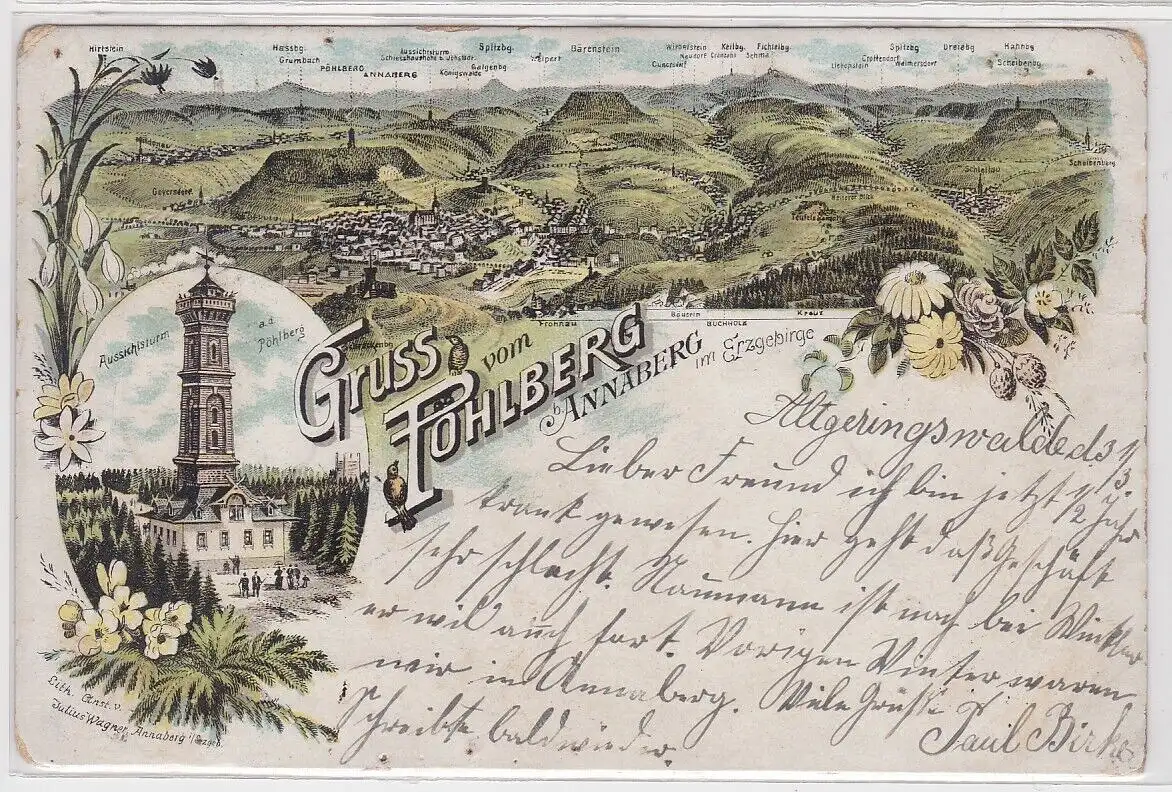 Hirtstein Hassbg. Aussichtsturm Spitzbg. Bärenstein Wirbelstein Keilbg. Fichtelbg. Spitzbg Dreiebg Hahnbg
Grumbach Schiesshaushöhe b. Jöhstadt. Weipert Neudorf Cranzahl Sehma Crottendorf
PÖHLBERG ANNABERG Galgenbg. Königswalde Cunersdorf Walmersdorf Scheibenbg
Geyersdorf
Scheibenberg
Schlettau
Heiterer Blick
Teufels
Frohnau Bäuerin BUCHHOLZ Kreuz
Aussichtsturm a.d. Pöhlberg
Gruss vom
PÖHLBERG
b. ANNABERG im Erzgebirge
Altgeringswalde d 31/3.
Lieber Freund ich bin jetzt 1/2 Jahr
krank gewesen. Hier geht daß Geschäft
sehr schlecht. Naumann ist noch bei Winkler
er wil auch fort. Vorigen Winter waren
wir in Annaberg. Viele Grüsse
Schreibte bald wieder.
Paul Birke
Lith. Anst. v.
Julius Wagner, Annaberg i/Erzgeb.